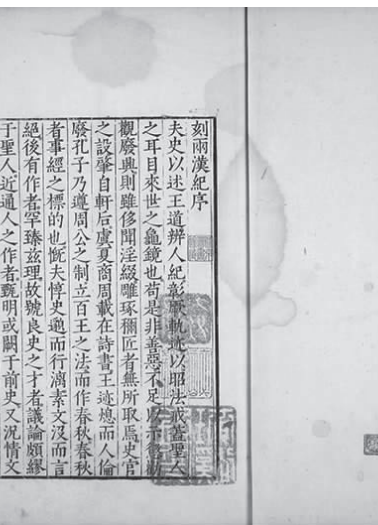 刻兩漢紀序
夫史以述王道辨人紀彰厥軌迹以昭法戒蓋聖人
之耳目來世之龜鏡也苟是非善惡不足以示
觀廢興則雖侈聞淫綴雕琢彌匠者無所取焉史官
之設肇自軒后虞夏商周載在詩書王迹熄而人倫
廢孔子乃遵周公之制立百王之法而作春秋春秋
者事經之標的也慨夫惇史邈而行漓素文沒而言
絕後有作者罕臻茲理故號良史之才者議論頗繆
于聖人近通人之作者甄明或闕于前史又況情文